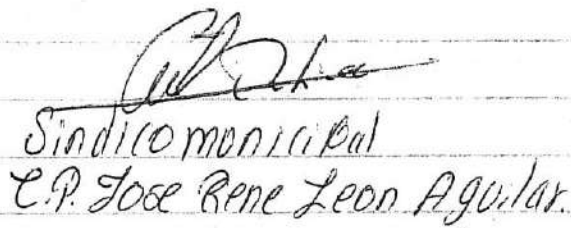 Sindico municipal
C.P. Jose Rene Leon Aguilar.